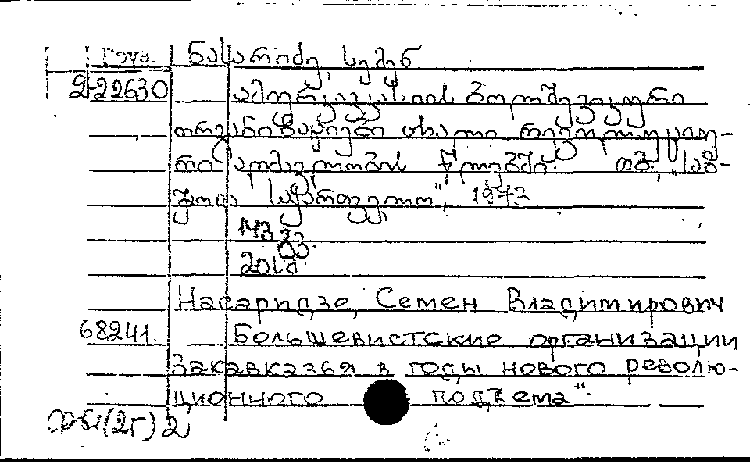 ნასარიძე, სემენ
2-22630 ამიერკავკასიის ბოლშევიკური
ორგანიზაციები ახალი რევოლუციუ-
რი აღმავლობის წლებში. თბ. „საბ-
ჭოთა საქართველო", 1973
Насаридзе, Семен Владимирович
68241 Большевистские организации
Закавказья в годы нового револю-
ционного подъема"